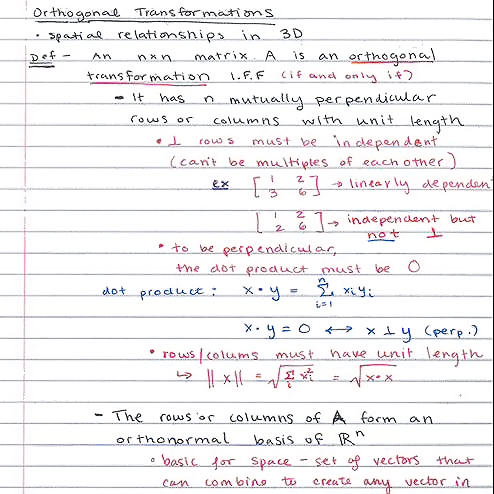 Orthogonal Transformations
• spatial relationships in 3D
Def - An n×n matrix A is an orthogonal
transformation I.F.F (if and only if)
- It has n mutually perpendicular
rows or columns with unit length
• ⊥ rows must be independent
(can't be multiples of each other)
ex [1 2
3 6] → linearly dependen
[1 2
2 6] → independent but
not ⊥
• to be perpendicular,
the dot product must be 0
dot product: x • y = n∑i=1 xiyi
x • y = 0 ↔ x ⊥ y (perp.)
• rows/colums must have unit length
↳ ||x|| = √∑i xi² = √x•x
- The rows or columns of A form an
orthonormal basis of ℝⁿ
• basic for space - set of vectors that
can combine to create any vector in